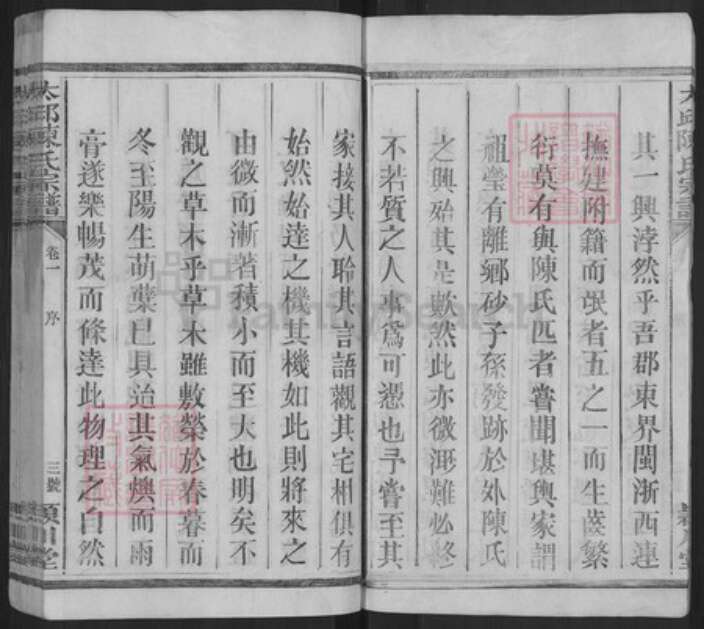 其一興浡然乎吾郡東界閩浙西連
撫建附籍而氓者五之一而生齒繁
衍莫有與陳氏匹者嘗聞堪輿家謂
祖塋有離鄉砂子孫發跡於外陳氏
之興殆其是歟然此亦微渺難必終
不若質之人事爲可憑也予嘗至其
家接其人聆其言語觀其宅相俱有
始然始達之機其機如此則將來之
由微而漸著積小而至大也明矣不
觀之草木乎草木雖敷榮於春暮而
冬至陽生萌蘖已具治其氣燠而雨
膏遂樂暢茂而條達此物理之自然
太邱陳氏宗譜
卷一
序
三號
潁川堂
FamilySearch